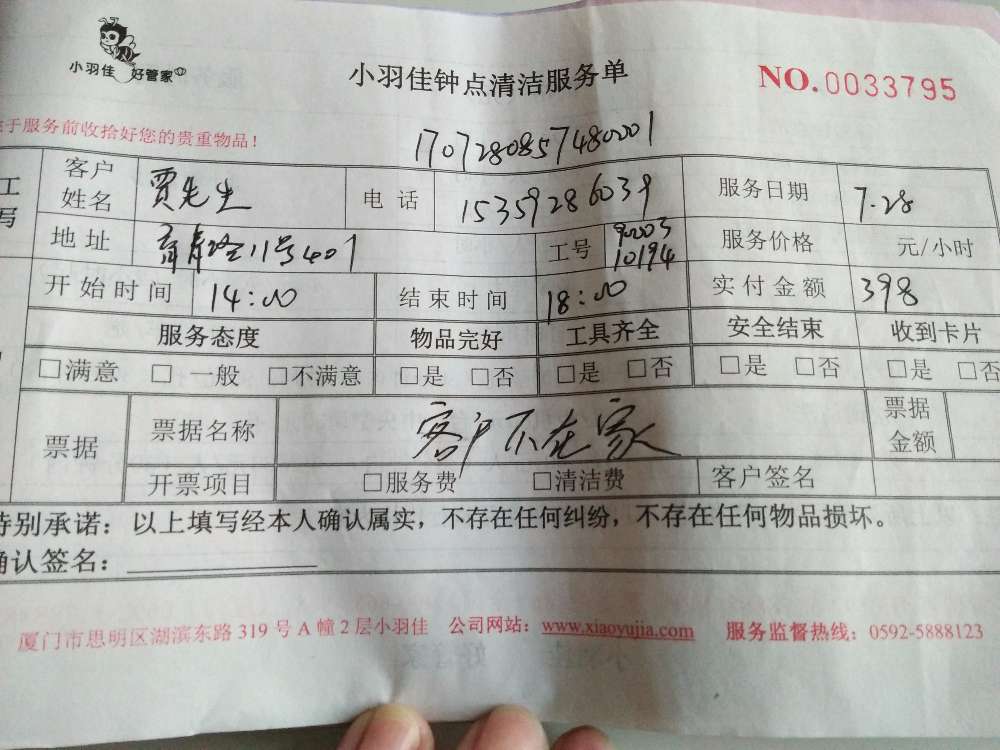 小羽佳 好管家
小羽佳钟点清洁服务单
NO.0033795
于服务前收拾好您的贵重物品！
17072808574800001
工
写
客户姓名 贾先生 电话 15359286039 服务日期 7.28
地址 11号401 工号 90003 10194 服务价格 元/小时
开始时间 14:00 结束时间 18:00 实付金额 398
服务态度 物品完好 工具齐全 安全结束 收到卡片
□满意 □一般 □不满意 □是 □否 □是 □否 □是 □否 □是 □否
票据 票据名称 客户不在家 票据金额
开票项目 □服务费 □清洁费 客户签名
特别承诺：以上填写经本人确认属实，不存在任何纠纷，不存在任何物品损坏。
确认签名：
厦门市思明区湖滨东路319号A幢2层小羽佳 公司网站：www.xiaoyujia.com 服务监督热线：0592-5888123